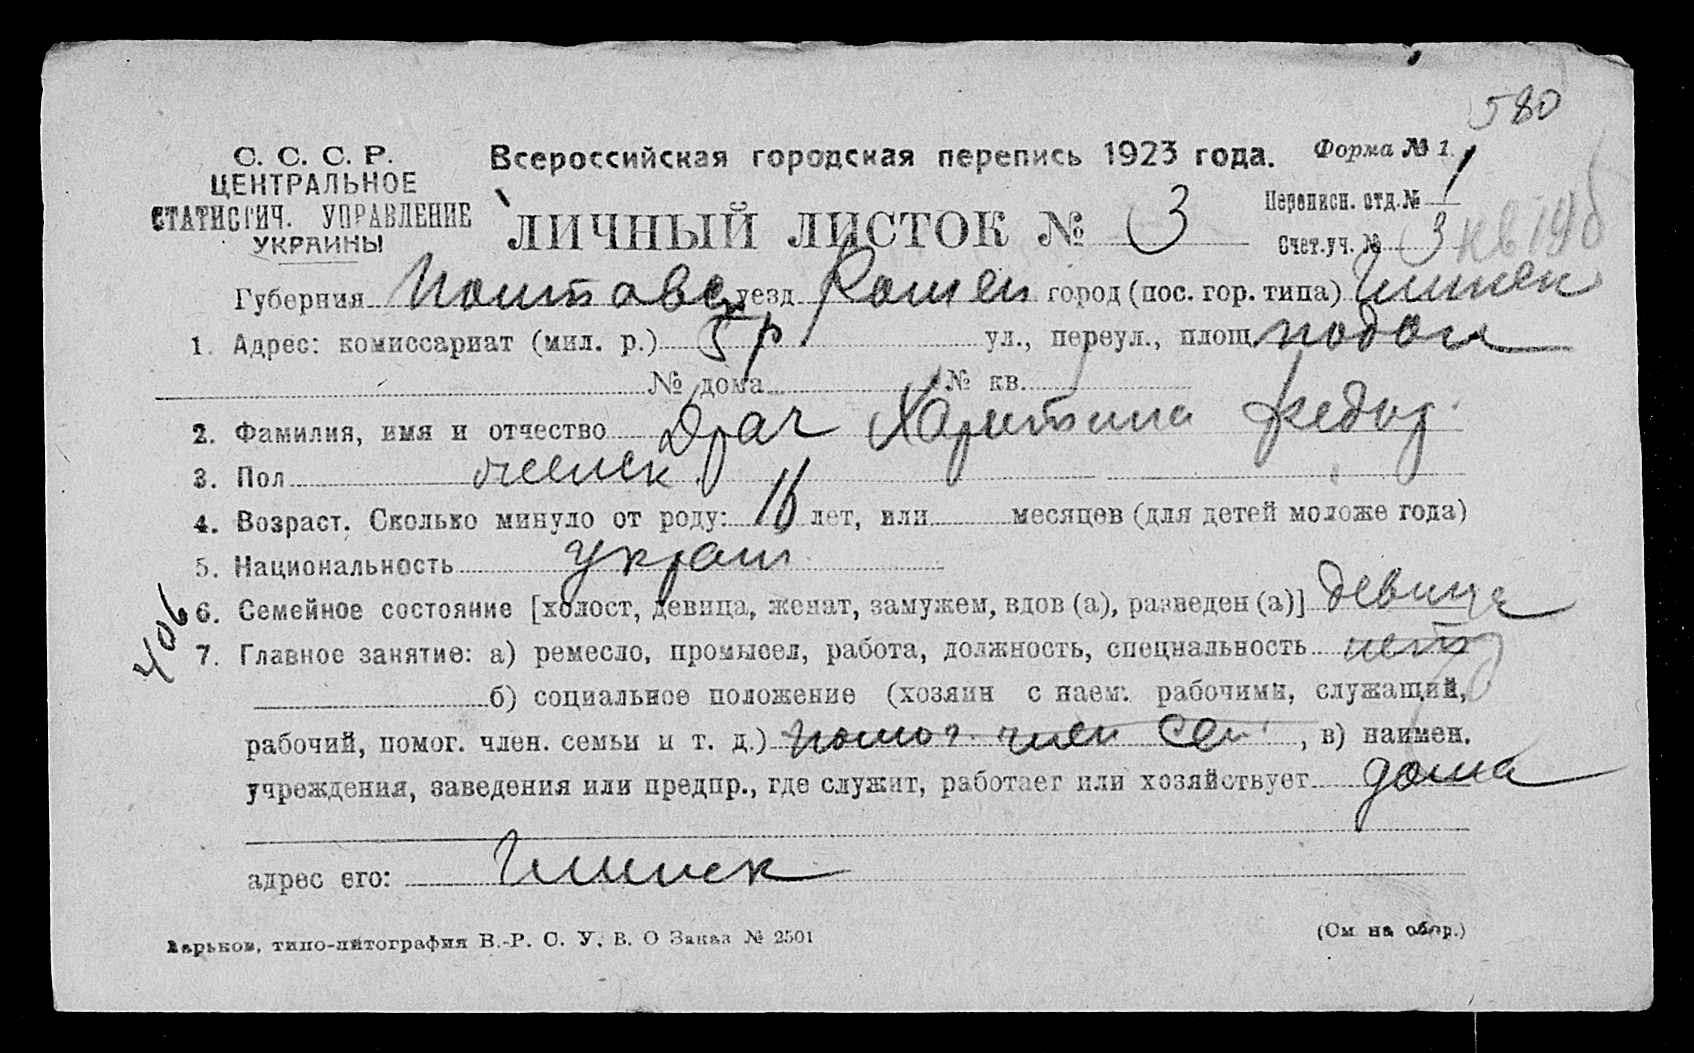 580
С. С. С. Р.
ЦЕНТРАЛЬНОЕ
СТАТИСТИЧ. УПРАВЛЕНИЕ
УКРАИНЫ
Всероссийская городская перепись 1923 года.
Форма № 1.
ЛИЧНЫЙ ЛИСТОК № 3
Переписн. отд. № 1
Счет. уч. № 3
Губерния Полтавс уезд Ромен город (пос. гор. типа) Глинск
1. Адрес: комиссариат (мил. р.) 5 р ул., переул., площ. подол
№ дома № кв.
2. Фамилия, имя и отчество Драч Харитина Федор.
3. Пол женск.
4. Возраст. Сколько минуло от роду: 16 лет, или месяцев (для детей моложе года)
5. Национальность Украин
406
6. Семейное состояние [холост, девица, женат, замужем, вдов (а), разведен (а)] девица
7. Главное занятие: а) ремесло, промысел, работа, должность, специальность нет
б) социальное положение (хозяин с наем. рабочими, служащий,
рабочий, помог. член. семьи и т. д.) помог. член сем., в) наимен.
учреждения, заведения или предпр., где служит, работает или хозяйствует дома
адрес его: Глинск
Харьков, типо-литография В.-Р. С. У. В. О Заказ № 2501
(См на обор.)